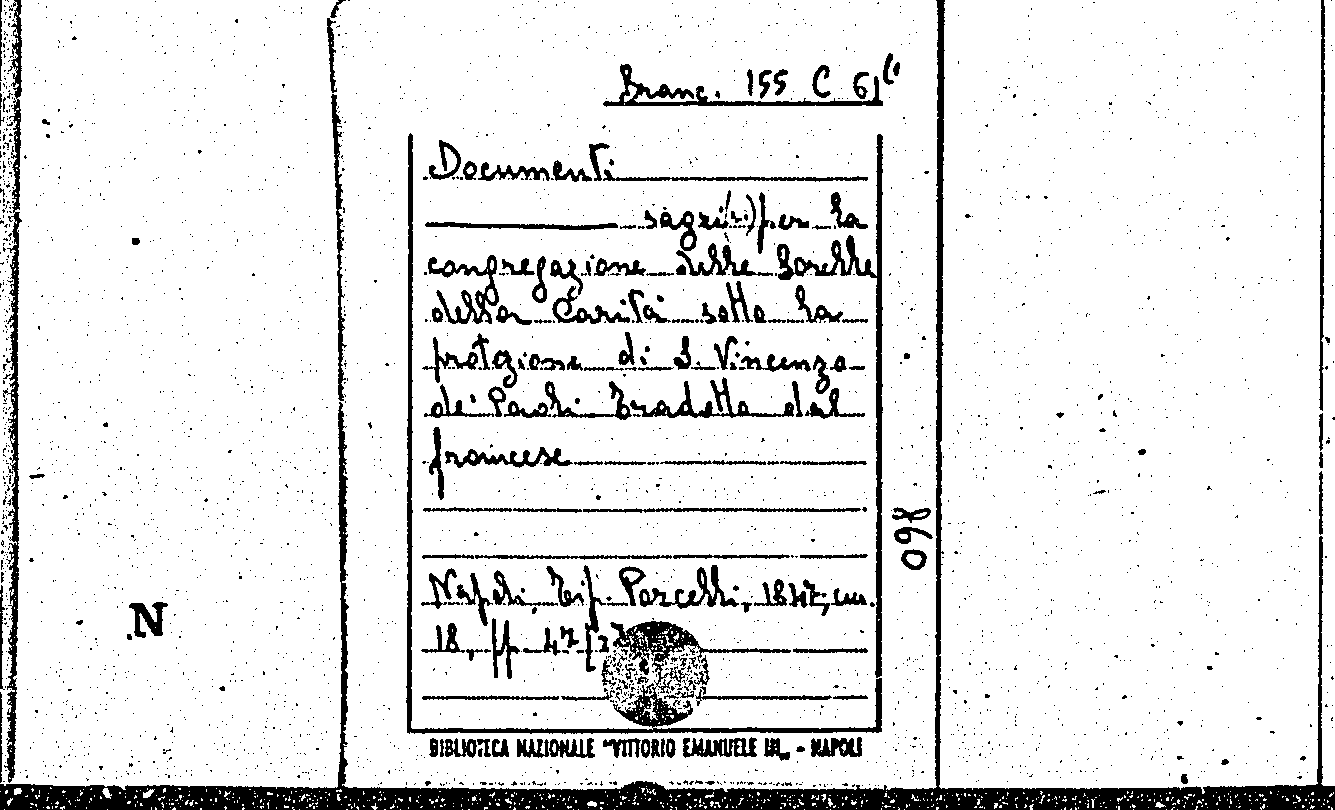 Branc. 155 C 61(1
Documenti
sagri(..) per la
congregazione delle Sorelle
della Carità sotto la
protezione di S. Vincenzo
de' Paoli tradotto dal
francese
Napoli, Tip. Porcelli, 1847, cm.
18, pp. 47 [
BIBLIOTECA NAZIONALE "VITTORIO EMANUELE III„ - NAPOLI
860
N